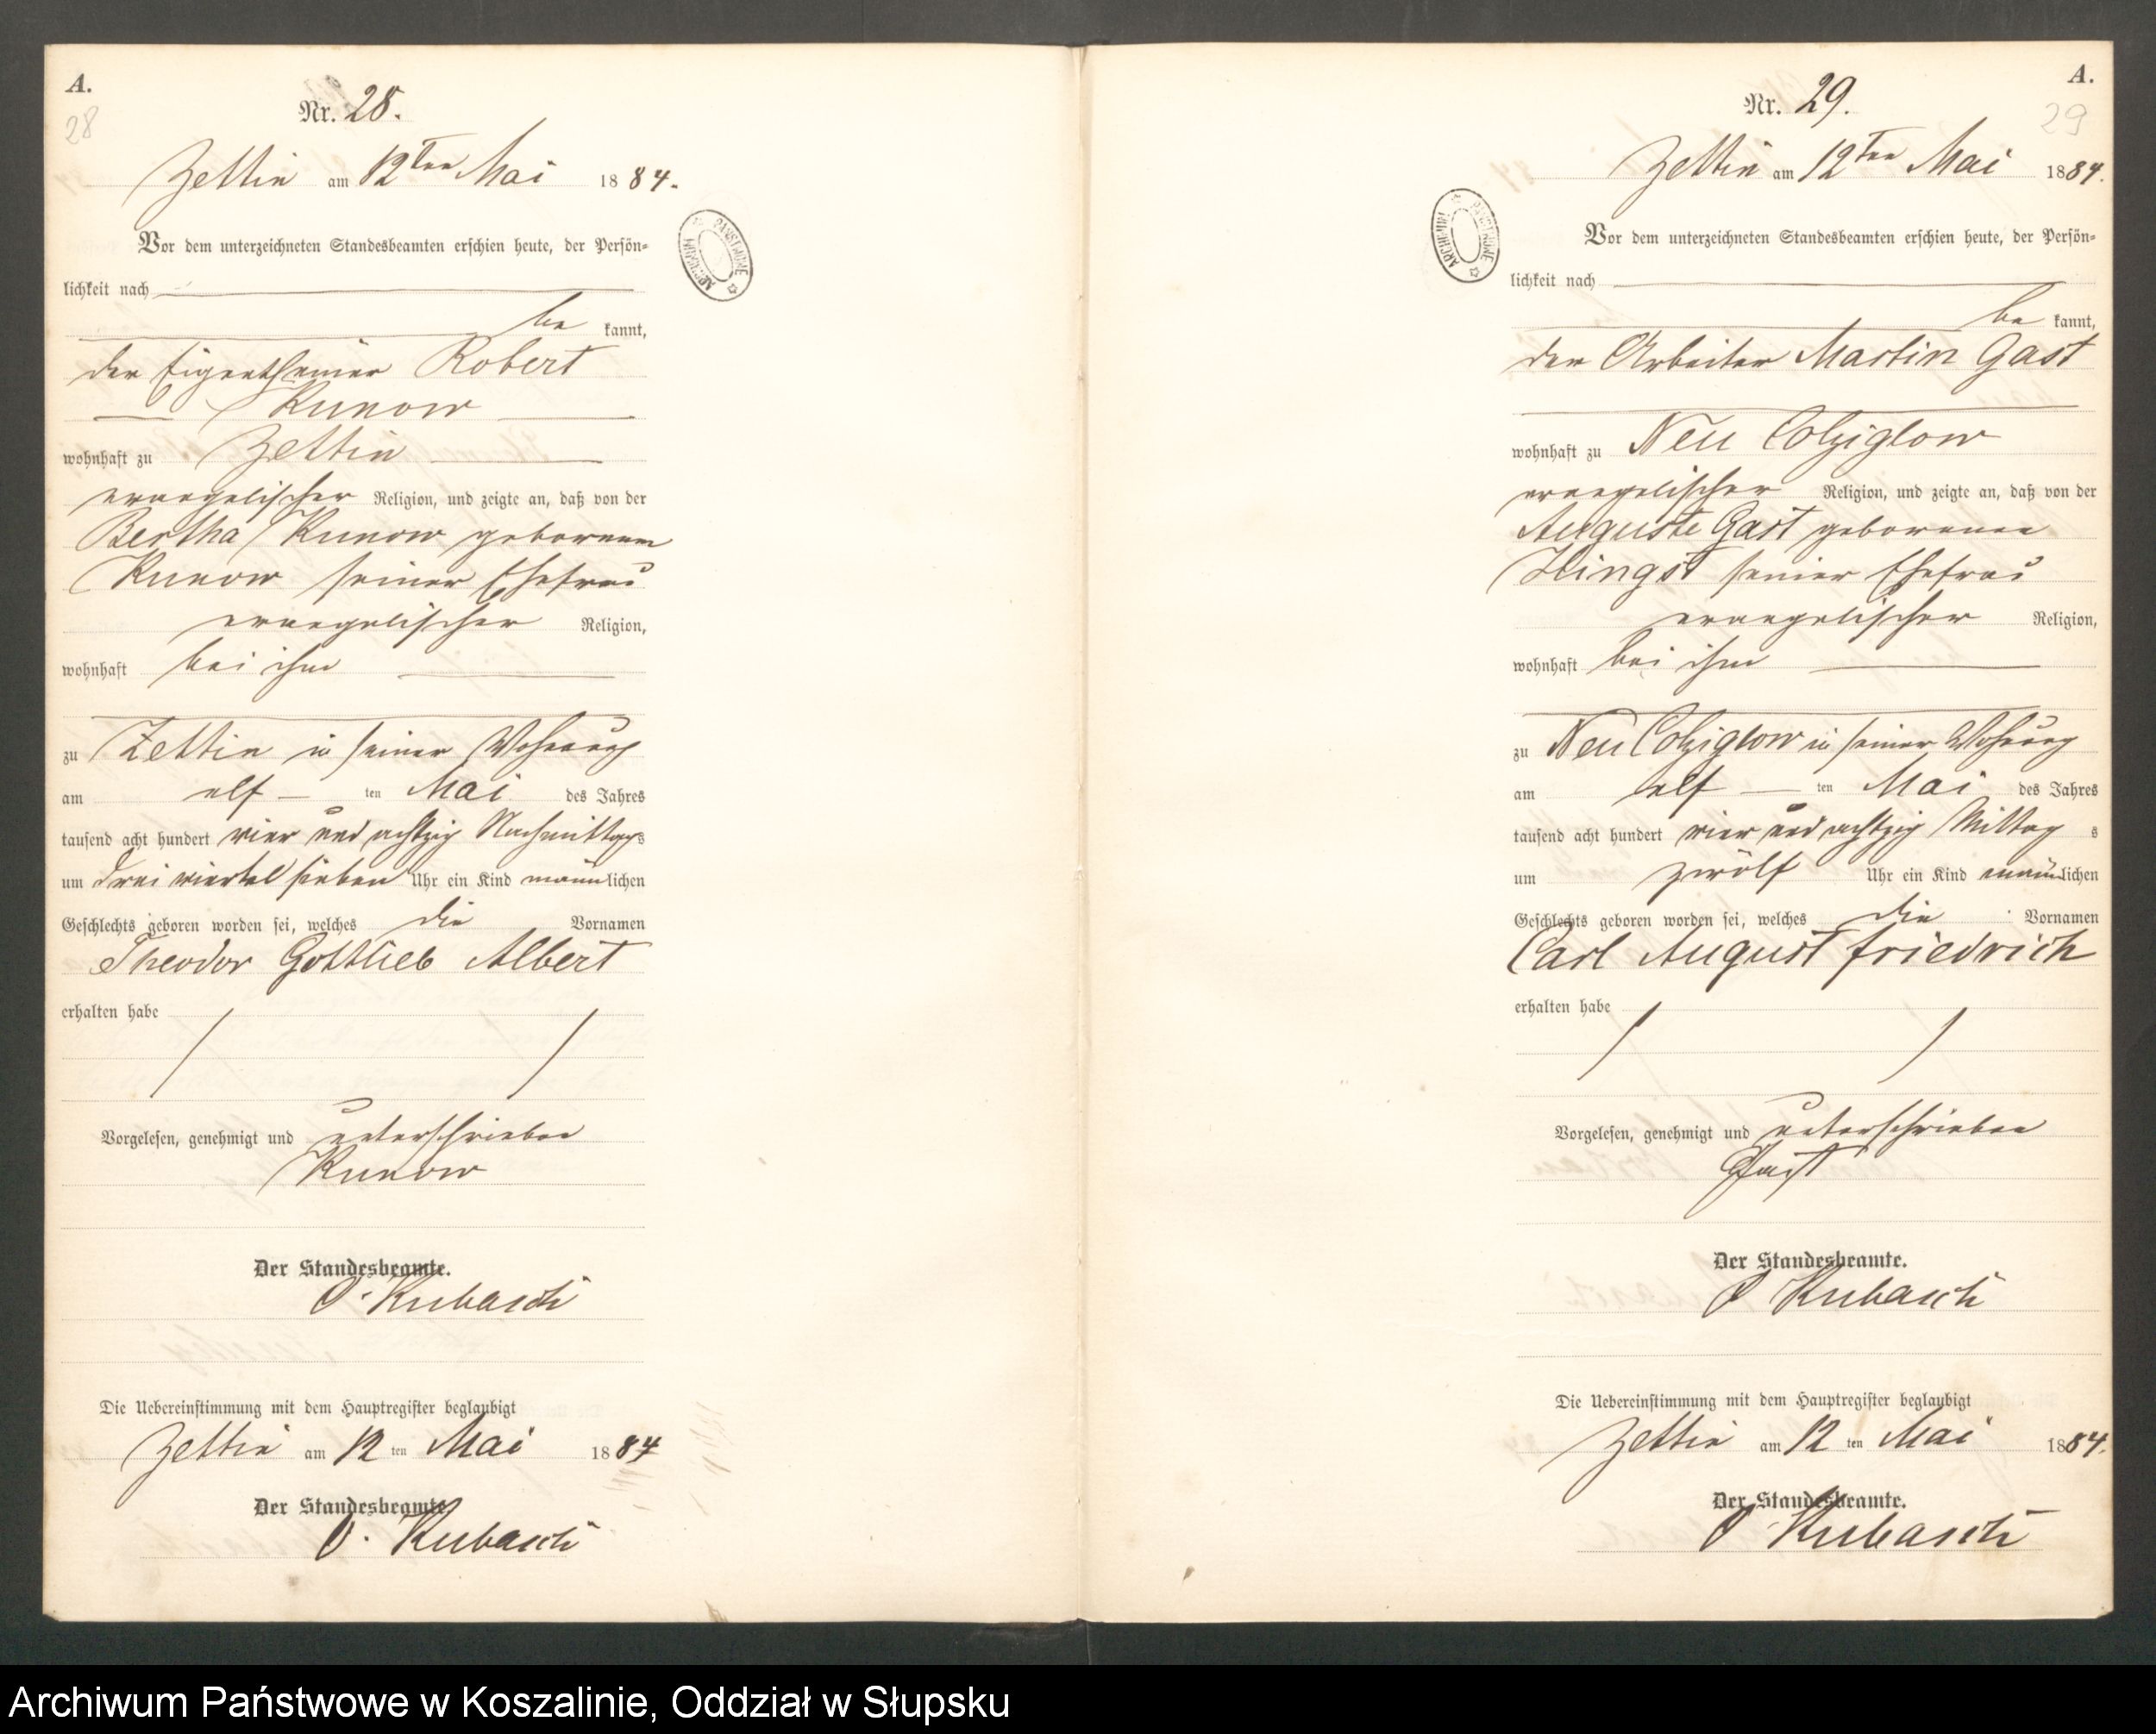 A.
28
Nr. 28.
Zettin am 12ten Mai 1884.
Vor dem unterzeichneten Standesbeamten erschien heute, der Persön-
lichkeit nach
be kannt,
der Eigenthümer Robert
Kunow
wohnhaft zu Zettin
evangelischer Religion, und zeigte an, daß von der
Bertha Kunow geborenen
Kunow seiner Ehefrau
evangelischer Religion,
wohnhaft bei ihm
zu Zettin in seiner Wohnung
am elf ten Mai des Jahres
tausend acht hundert vier und achtzig Nachmittags
um drei viertel sieben Uhr ein Kind männlichen
Geschlechts geboren worden sei, welches die Vornamen
Theodor Gottlieb Albert
erhalten habe
Vorgelesen, genehmigt und unterschrieben
Kunow
Der Standesbeamte.
O. Kubasch
Die Uebereinstimmung mit dem Hauptregister beglaubigt
Zettin am 12 ten Mai 1884
Der Standesbeamte.
O. Kubasch
ARCHIWUM PAŃSTWOWE
A.
29
Nr. 29.
Zettin am 12ten Mai 1884.
Vor dem unterzeichneten Standesbeamten erschien heute, der Persön-
lichkeit nach
be kannt,
der Arbeiter Martin Gast
wohnhaft zu Neu Colziglow
evangelischer Religion, und zeigte an, daß von der
Auguste Gast geborenen
Hingst seiner Ehefrau
evangelischer Religion,
wohnhaft bei ihm
zu Neu Colziglow in seiner Wohnung
am elf ten Mai des Jahres
tausend acht hundert vier und achtzig Mittag s
um zwölf Uhr ein Kind männlichen
Geschlechts geboren worden sei, welches die Vornamen
Carl August Friedrich
erhalten habe
Vorgelesen, genehmigt und unterschrieben
Gast
Der Standesbeamte.
O Kubasch
Die Uebereinstimmung mit dem Hauptregister beglaubigt
Zettin am 12 ten Mai 1884.
Der Standesbeamte.
O Kubasch
ARCHIWUM PAŃSTWOWE
Archiwum Państwowe w Koszalinie, Oddział w Słupsku